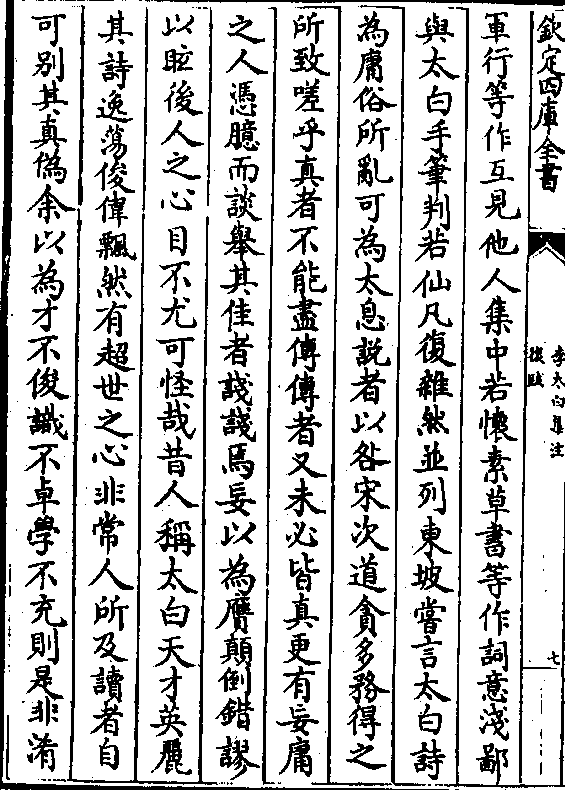 欽定四庫全書
李太白集注
後跋
七
軍行等作互見他人集中若懷素草書等作詞意淺鄙
與太白手筆判若仙凡復雜然並列東坡嘗言太白詩
為庸俗所亂可為太息説者以咎宋次道貪多務得之
所致嗟乎真者不能盡傳傳者又未必皆真更有妄庸
之人憑臆而談舉其佳者諓諓焉妄以為贋顛倒錯謬
以眩後人之心目不尤可怪哉昔人稱太白天才英麗
其詩逸蕩俊偉飄然有超世之心非常人所及讀者自
可别其真偽余以為才不俊識不卓學不充則是非淆